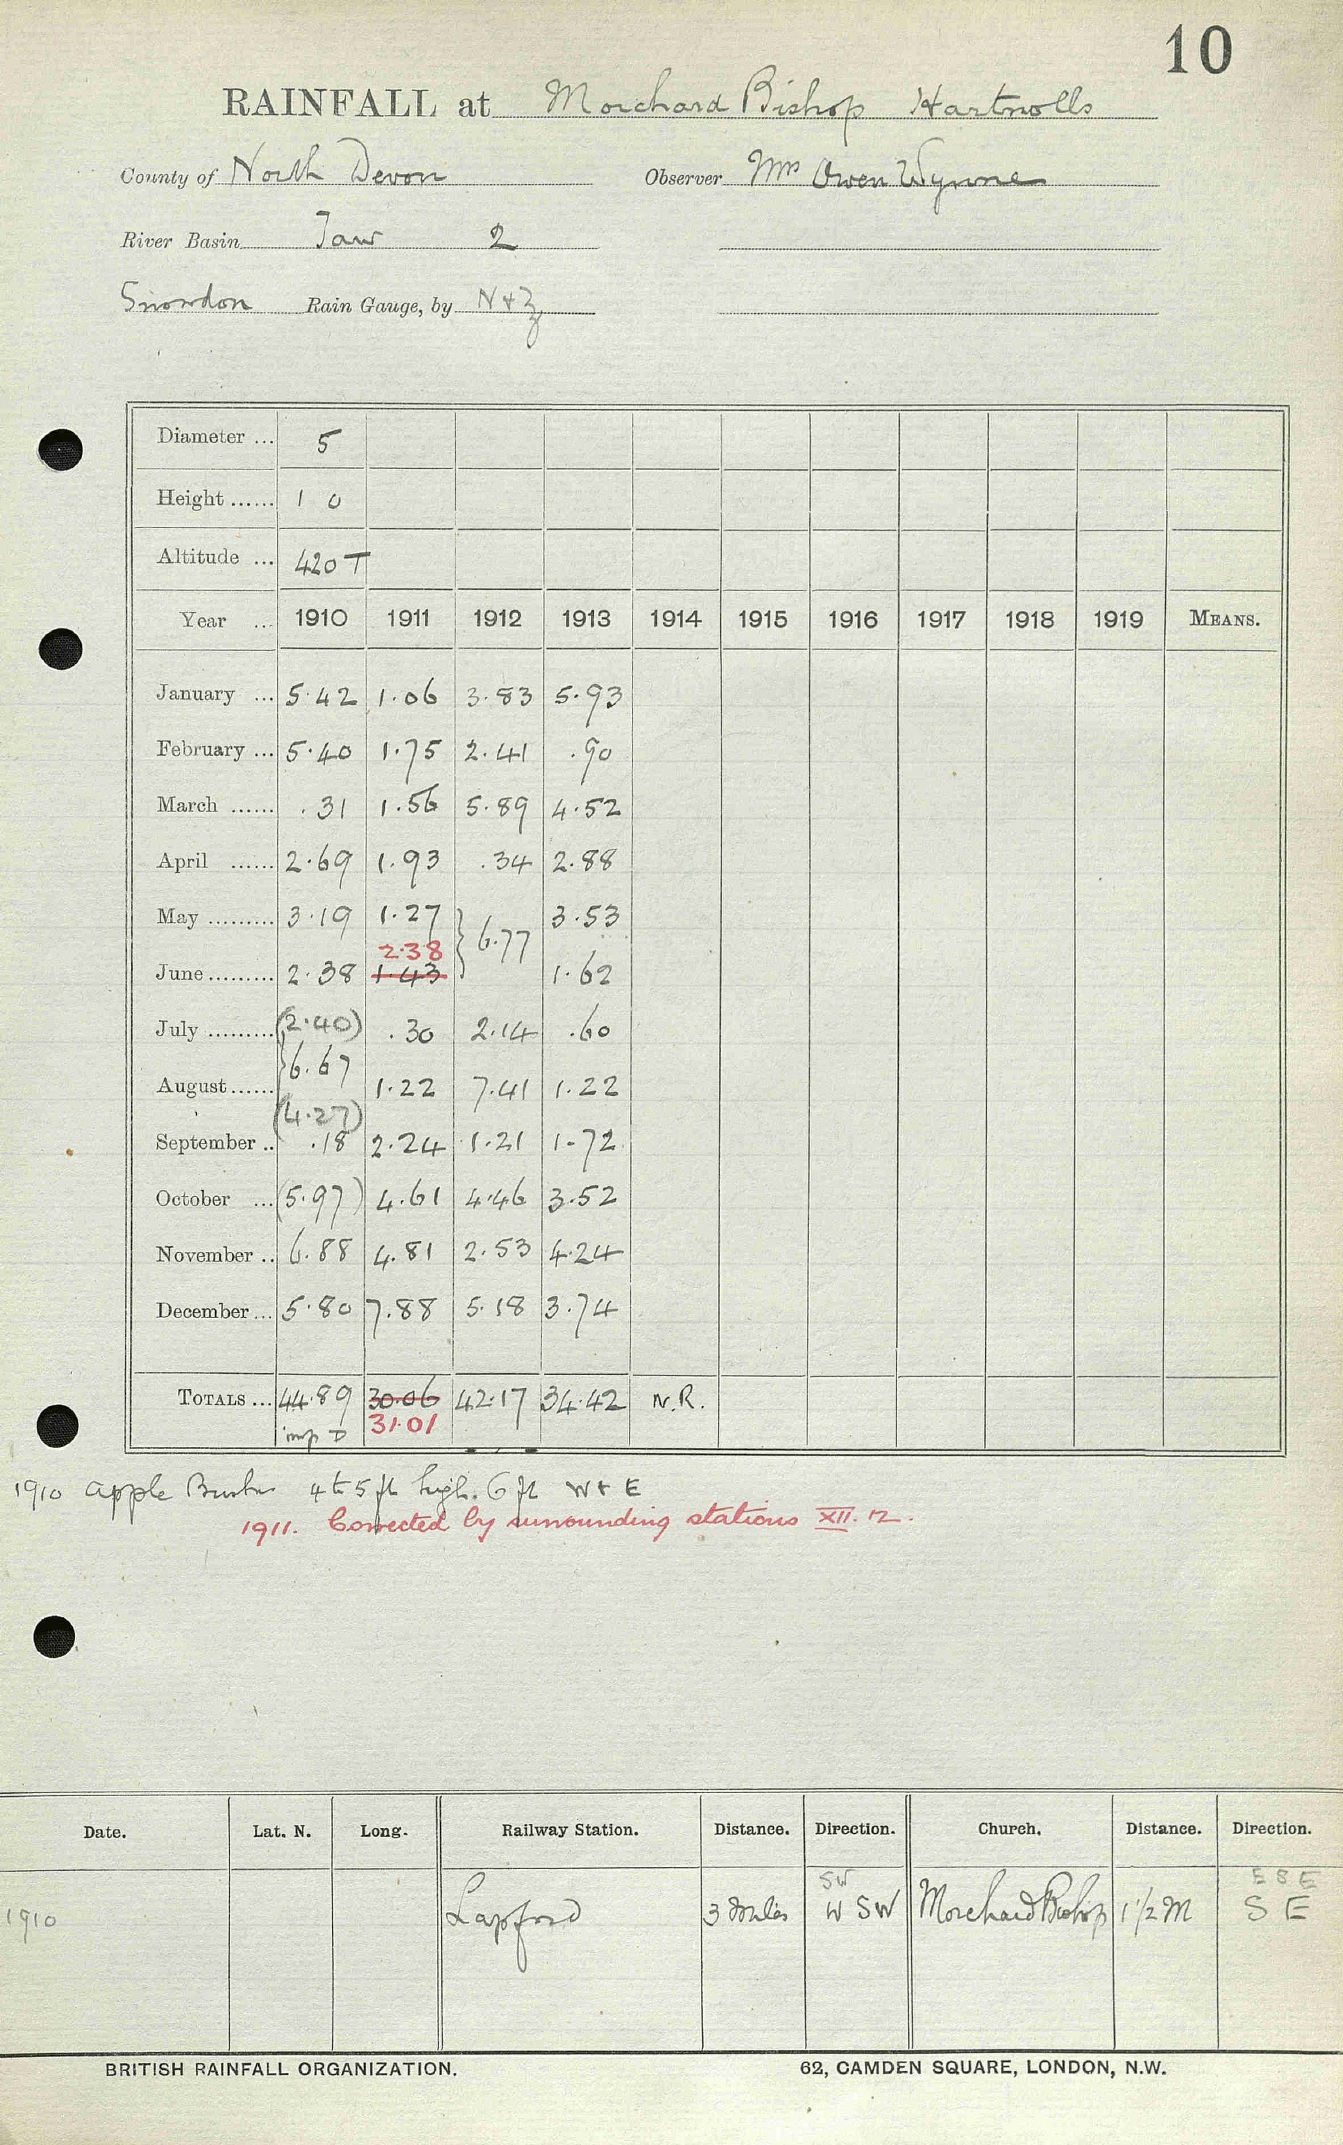 10
RAINFALL at Morchard Bishop Hartnolls
County of North Devon Observer Mrs Owen Wynne
River Basin Taw 2
Snowdon Rain Gauge, by N+Z
Diameter ... 5
Height ...... 1 0
Altitude ... 420 T
Year ... 1910 1911 1912 1913 1914 1915 1916 1917 1918 1919 MEANS.
January ... 5.42 1.06 3.83 5.93
February ... 5.40 1.75 2.41 .90
March ...... .31 1.56 5.89 4.52
April ...... 2.69 1.93 .34 2.88
May ......... 3.19 1.27 } 6.77 3.53
2.38
June ......... 2.38 1.43 1.62
July ......... (2.40) .30 2.14 .60
} 6.67
August ...... 1.22 7.41 1.22
(4.27)
September .. .18 2.24 1.21 1.72
October ... (5.97) 4.61 4.46 3.52
November .. 6.88 4.81 2.53 4.24
December ... 5.80 7.88 5.18 3.74
TOTALS ... 44.89 30.06 42.17 34.42 N.R.
imp D 31.01
1910 apple Bushes 4 to 5 ft high. 6 ft W + E
1911. Corrected by surrounding stations XII. 12.
Date. Lat. N. Long. Railway Station. Distance. Direction. Church. Distance. Direction.
SW E S E
1910 Lapford 3 Miles W SW Morchard Bishop 1 1/2 M S E
BRITISH RAINFALL ORGANIZATION. 62, CAMDEN SQUARE, LONDON, N.W.